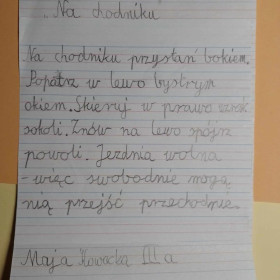 „Na chodniku"
Na chodniku przystań bokiem.
Popatrz w lewo bystrym
okiem. Skieruj w prawo wzrok
sokoli. Znów na lewo spójrz
powoli. Jezdnia wolna
- więc swobodnie mogą
nią przejść przechodnie.
Maja Nowacka III a